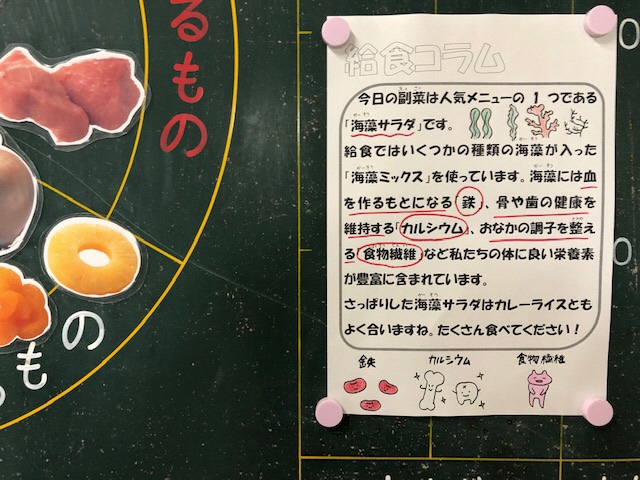 るもの
もの
給食コラム
今日の副菜は人気メニューの1つである
「海藻サラダ」です。
給食ではいくつかの種類の海藻が入った
「海藻ミックス」を使っています。海藻には血
を作るもとになる「鉄」、骨や歯の健康を
維持する「カルシウム」、おなかの調子を整え
る「食物繊維」など私たちの体に良い栄養素
が豊富に含まれています。
さっぱりした海藻サラダはカレーライスとも
よく合いますね。たくさん食べてください！
鉄 カルシウム 食物繊維